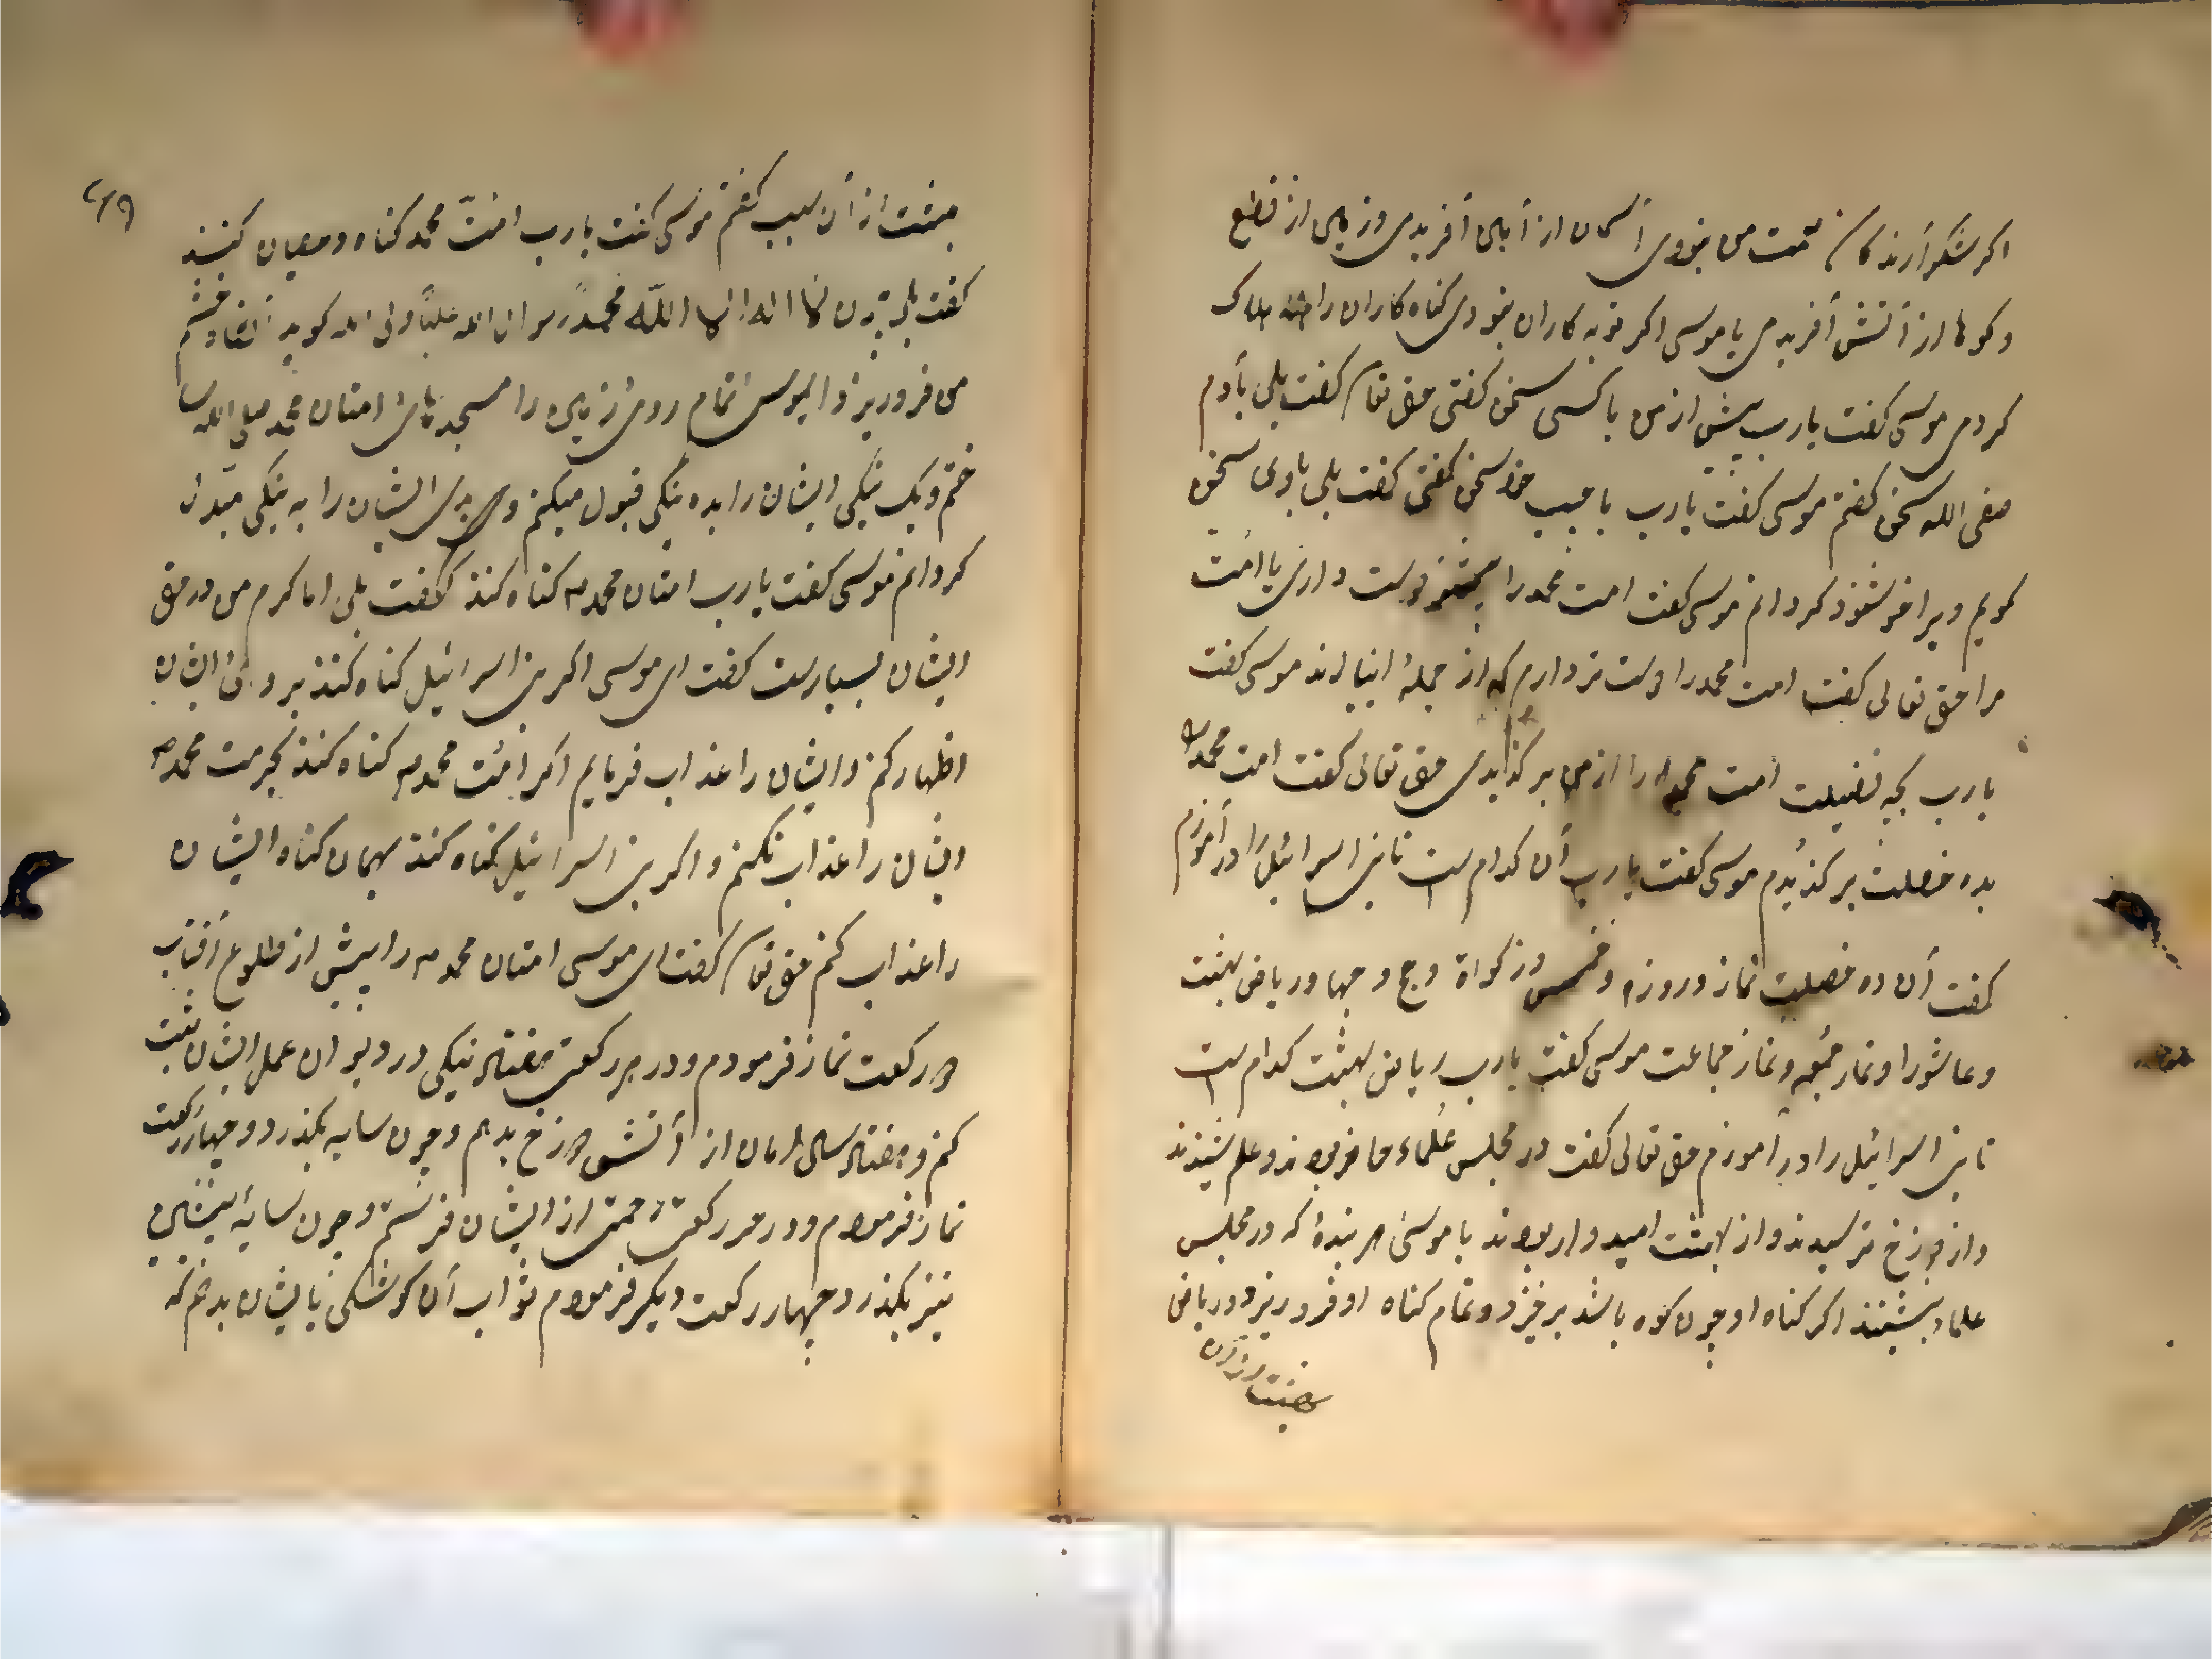 اکر شکرآرندکان نعمت من نبودی آسمان از آبی آفریدمی و زمین از قطع
و کوها از آتش آفریدمی یا موسی اکر توبه کاران نبودی کناه کاران را هلاک
کردمی موسی کفت یارب پیش از من با کسی سخن کفتی حق تعا کفت بلی بآدم
صفی الله سخن کفتم موسی کفت یارب با حبیب خود سخن کفتی کفت بلی باوی سخن
کویم ویرا خوشنود کردانم موسی کفت امت محمد را دوست داری یا امت
مرا حق تعالی کفت امت محمد را دوست تر دارم که از جملهٔ انبیا اند موسی کفت
یارب بچه فضیلت امت محمد را از من برکزیدی حق تعالی کفت امت محمد را
بده خصلت برکزیدم موسی کفت یارب آن کدام است تا بنی اسرائیل را در آموزم
کفت آن ده خصلت نماز و روزه و خمس و زکواة و حج و جهاد و ریاض بهشت
و عاشورا و نماز جمعه و نماز جماعت موسی کفت یارب ریاض بهشت کدام است
تا بنی اسرائیل را در آموزم حق تعالی کفت در مجلس علماء حاضر بودند و علم شنیدند
و از دوزخ ترسیدند و از بهشت امیدوار بودند یا موسی هر بندهٔ که در مجلس
علماء بنشیند اکر کناه او چون کوه باشد برخیزد و تمام کناه او فرو ریزد و ریاض
بهشت از آن
بهشت از آن سبب کفتم موسی کفت یارب امت محمد کناه و عصیان کنند
کفت بلی چون لا اله الا الله محمد رسول الله علیا ولی الله کوید
من فرو ریزد ای موسی تمام روی زمین را مسجد امتان محمد صلی الله
ختم و یک نیکی ایشان را بده نیکی قبول میکنم و بدی ایشان را به نیکی مبدل
کردانم موسی کفت یارب امتان محمد ص کناه کنند کفت بلی اما کرم من در حق
ایشان بسیارست کفت ای موسی اکر بنی اسرائیل کناه کنند بر روی ایشان
اظهار کنم و ایشان را عذاب فرمایم اکر امت محمد ص کناه کنند بحرمت محمد ص
ایشان را عذاب نکنم و اکر بنی اسرائیل کناه کنند بهمان کناه ایشان
را عذاب کنم حق تعا کفت ای موسی امتان محمد ص را پیش از طلوع آفتاب
دو رکعت نماز فرمودم و در هر رکعتی هفتاد نیکی در دیوان عمل ایشان ثبت
کنم و هفتاد سال امان از آتش دوزخ بدهم و چون سایه بکذرد و چهار رکعت
نماز فرمودم و در هر رکعتی رحمتی از ایشان فرستم و چون سایه پیشین
نیز بکذرد چهار رکعت دیکر فرمودم ثواب آن کوشکی بایشان بدهم که